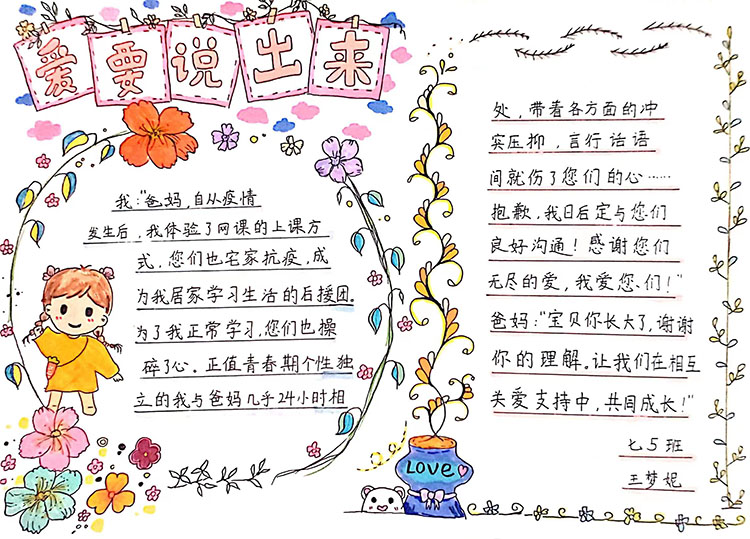 爱要说出来
我:"爸妈,自从疫情
发生后,我体验了网课的上课方
式,您们也宅家抗疫,成
为我居家学习生活的后援团。
为了我正常学习,您们也操
碎了心。正值青春期个性独
立的我与爸妈几乎24小时相
处,带着各方面的冲
突压抑,言行话语
间就伤了您们的心……
抱歉,我日后定与您们
良好沟通!感谢您们
无尽的爱,我爱您、们!"
爸妈:"宝贝你长大了,谢谢
你的理解。让我们在相互
关爱支持中,共同成长!"
七5班
王梦妮
LOVE